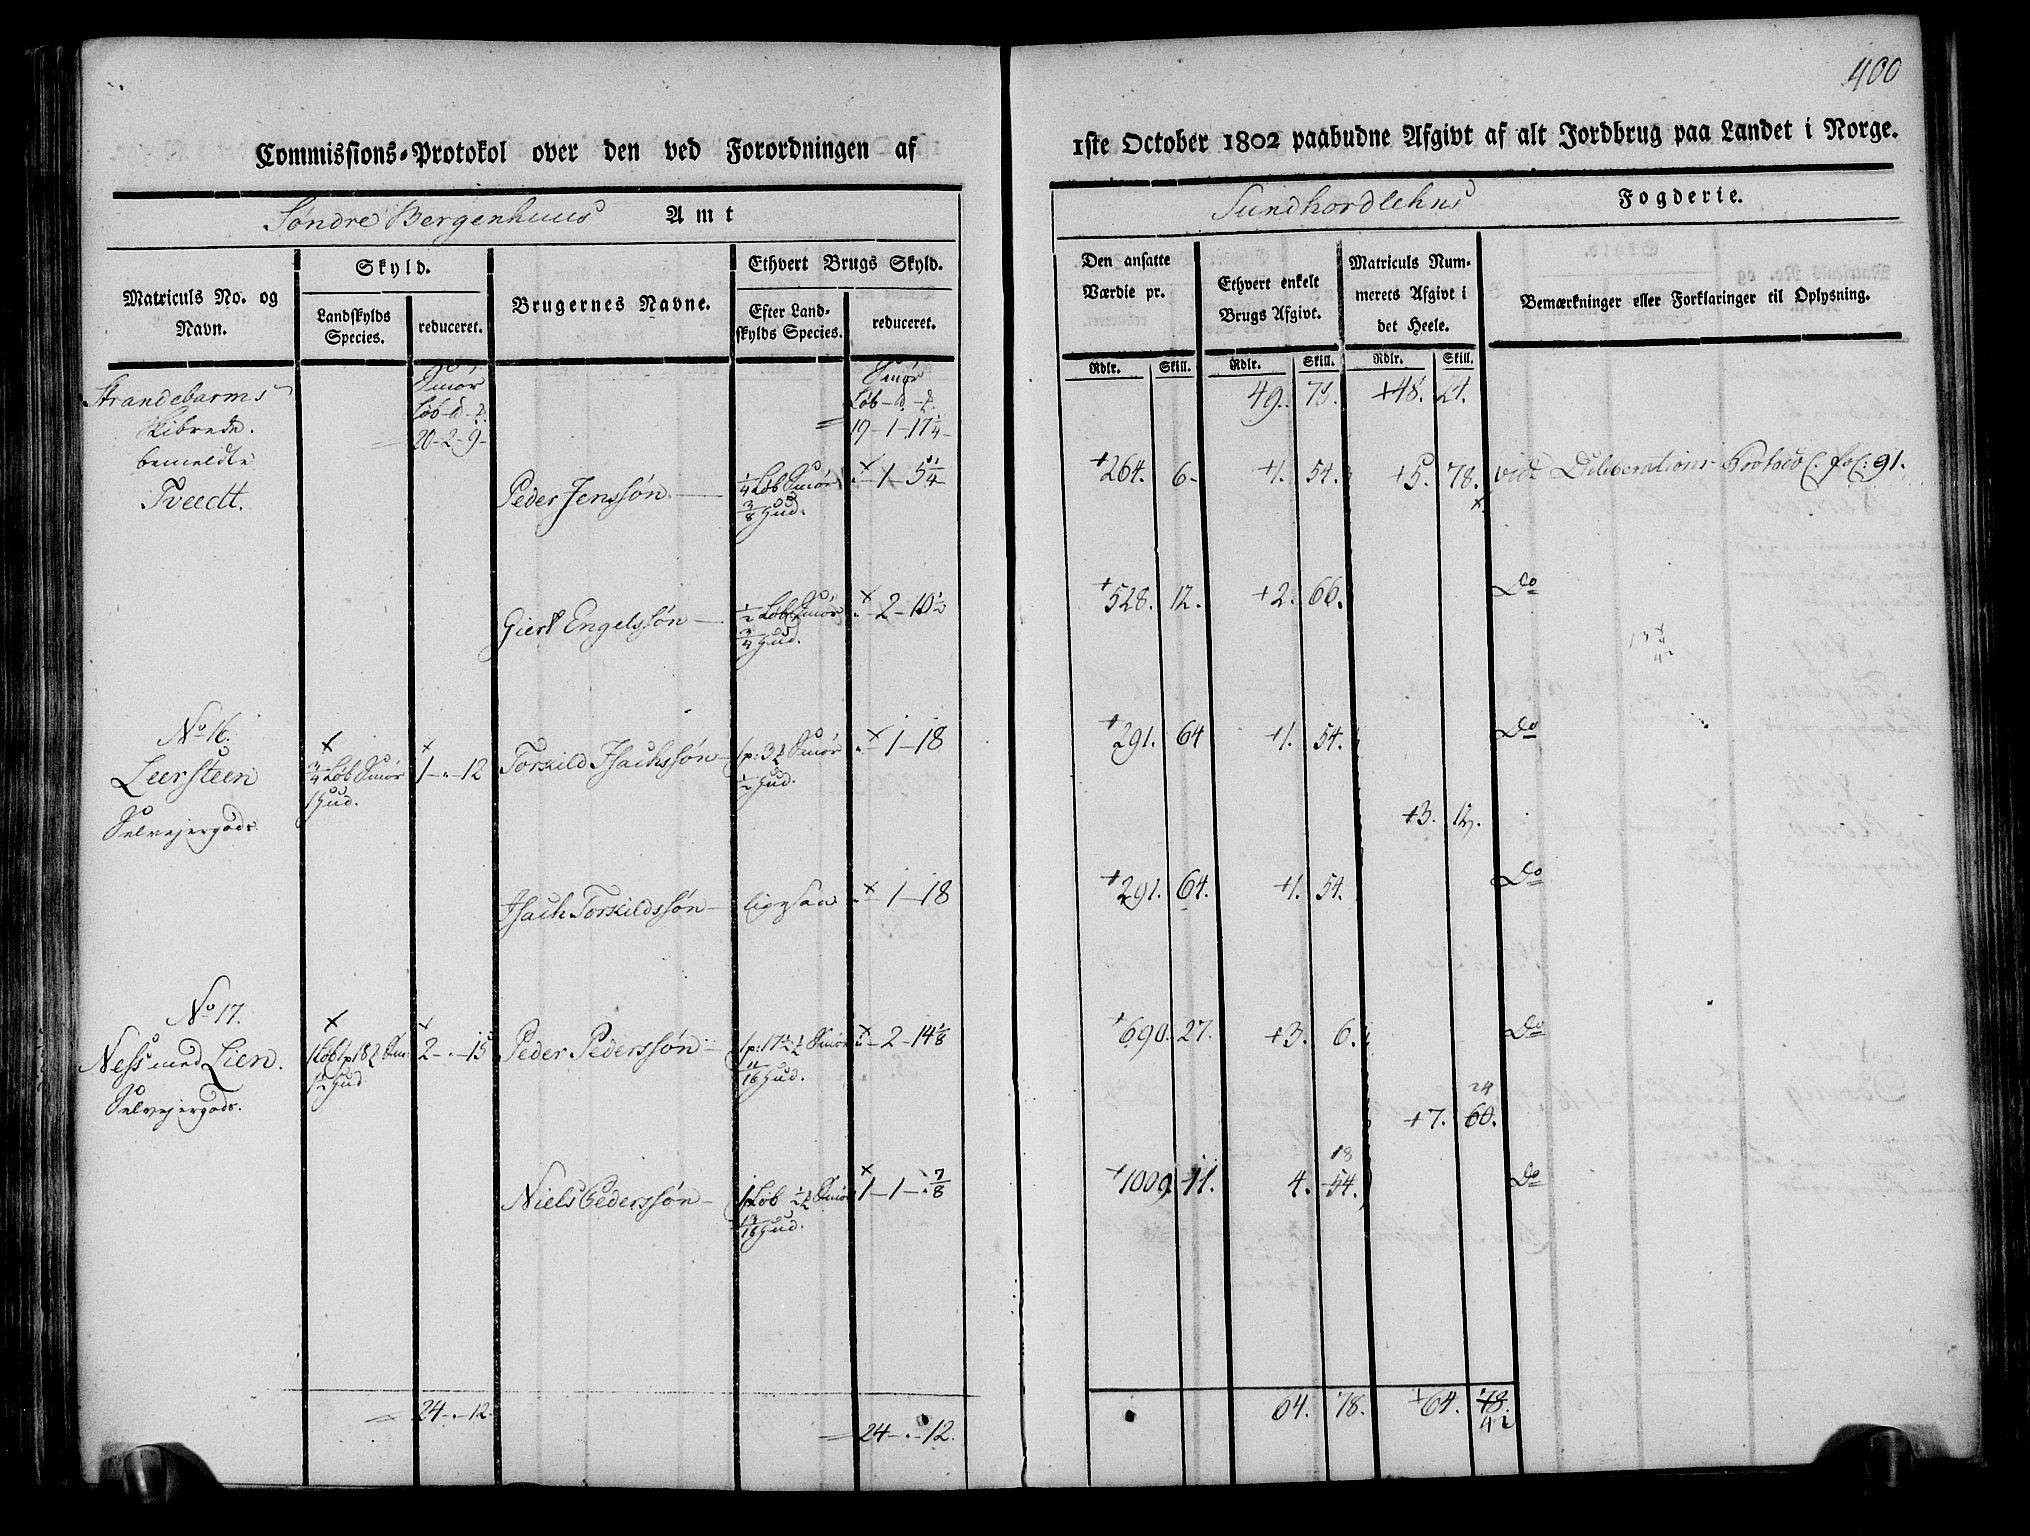 400
Commissions-Protokol over den ved Forordningen af
1ste October 1802 paabudne Afgivt af alt Jordbrug paa Landet i Norge.
Søndre Bergenhuus Amt
Sundhordlehns Fogderie.
Matriculs No. og Navn.
Skyld.
Landskylds Species.
reduceret.
Brugernes Navne.
Ethvert Brugs Skyld.
Efter Landskylds Species.
reduceret.
Den ansatte Værdie pr.
Ethvert enkelt Brugs Afgivt.
Matriculs Nummerets Afgivt i det Heele.
Bemærkninger eller Forklaringer til Oplysning.
Rdlr. Skill. Rdlr. Skill. Rdlr. Skill.
Strandebarms Smør Smør 49. 75. +48. 21.
Skibrede. Løb Løb
20-2-9- 19-1-17 1/4-
bemeldte
Tveedt. Peder Jenssøn 1/4 Løb Smør 3/8 Hud. -1-5 1/4 +264. 6- +1. 54. +5. 78. vid Deliberations Protoco C. fol: 91.
Giert Engelssøn 1/2 Løb Smør 3/4 Hud. -2-10 1/2 +528. 12. +2. 66. Do
No 16.
Leersteen 3/4 Løb Smør 1 Hud. 1-"-12 Torskild Isachssøn 1p: 3 Smør 1/2 Hud. -1-18 +291. 64 +1. 54. Do
Selvejergods +3. 12.
Isach Torskildssøn ligesaa -1-18 +291. 64. +1. 54. Do
No 17.
Ness med Lien. 1 Løb 1p 18 Sm: 1 1/2 Hud 2-"-15 Peder Pederssøn 1p: 17 1/2 Smør 11/16 Hud. -2-14 1/8 +690. 27. +3. 6. Do
Selvejergods.
24
+7. 60.
18
Niels Pederssøn 1 Løb 1/2 Smør 13/16 Hud. 1-1-7/8 +1009. 11. 4. 54. Do
24-"-12. 24-"-12. 64. 78. +64. 78.
42